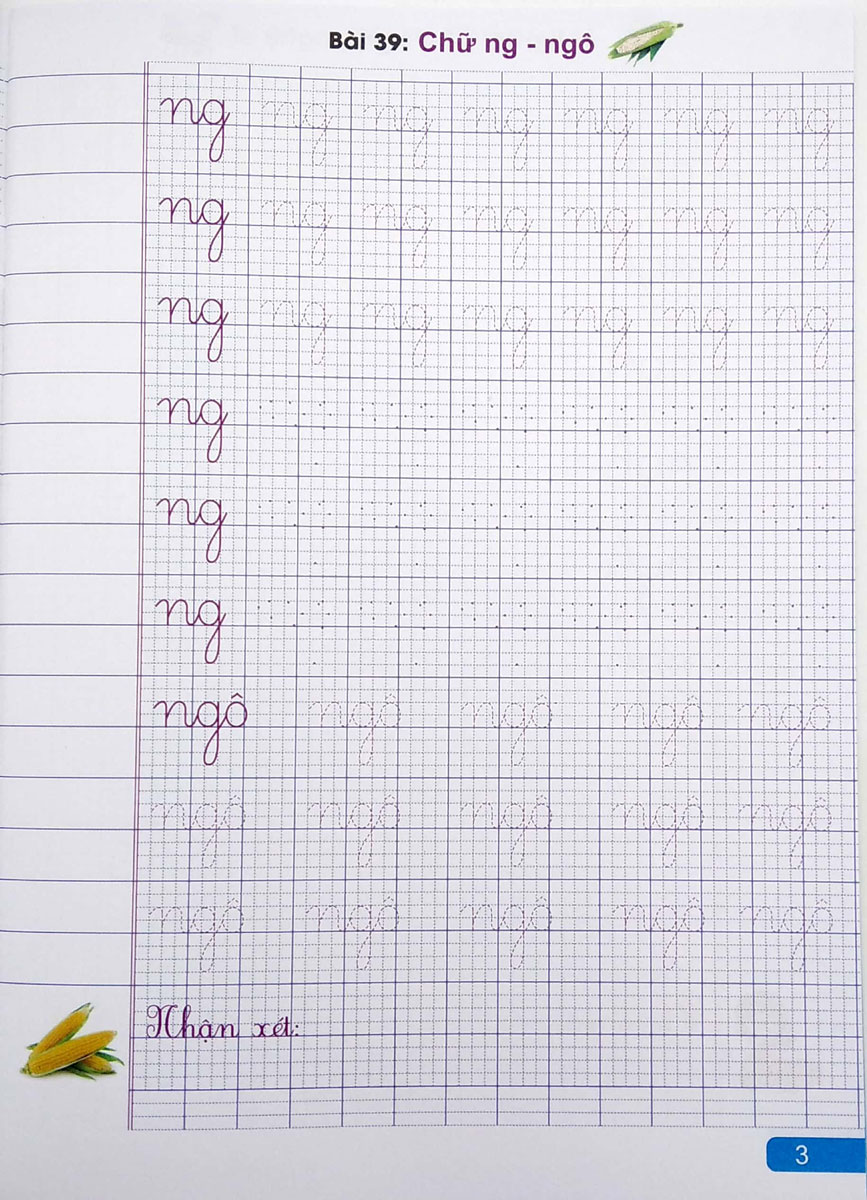 Bài 39: Chữ ng - ngô
ng ng ng ng ng ng ng
ng ng ng ng ng ng ng
ng ng ng ng ng ng ng
ng
ng
ng
ngô ngô ngô ngô ngô
ngô ngô ngô ngô ngô
ngô ngô ngô ngô ngô
Nhận xét:
3